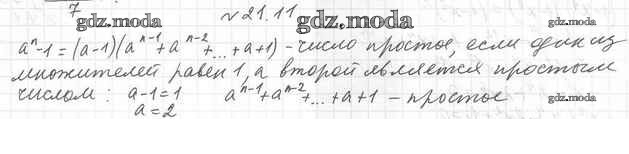 7
gdz.moda
№ 21.11
gdz.moda
gdz.moda
aⁿ-1 = (a-1)(aⁿ⁻¹+aⁿ⁻²+...+a+1) - число простое, если один из
множителей равен 1, а второй является простым
числом: a-1=1 aⁿ⁻¹+aⁿ⁻²+...+a+1 - простое
gdz.moda
a=2